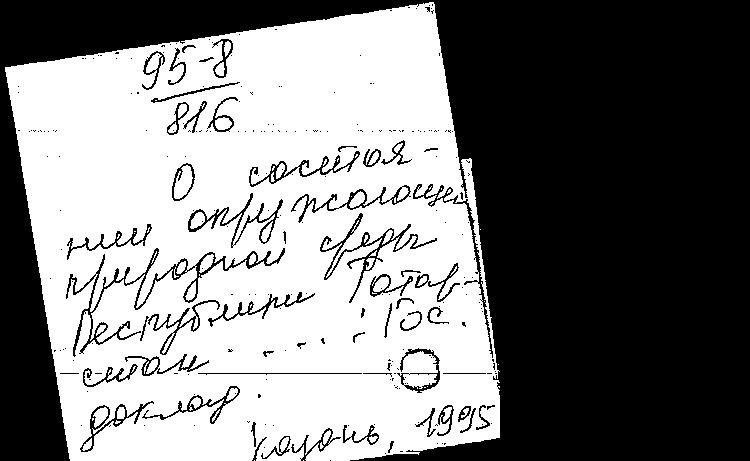 95-8
816
О состоя-
нии окружающей
природной среды
Республики Татар-
стан . . . . : Гос.
доклад.
Казань, 1995